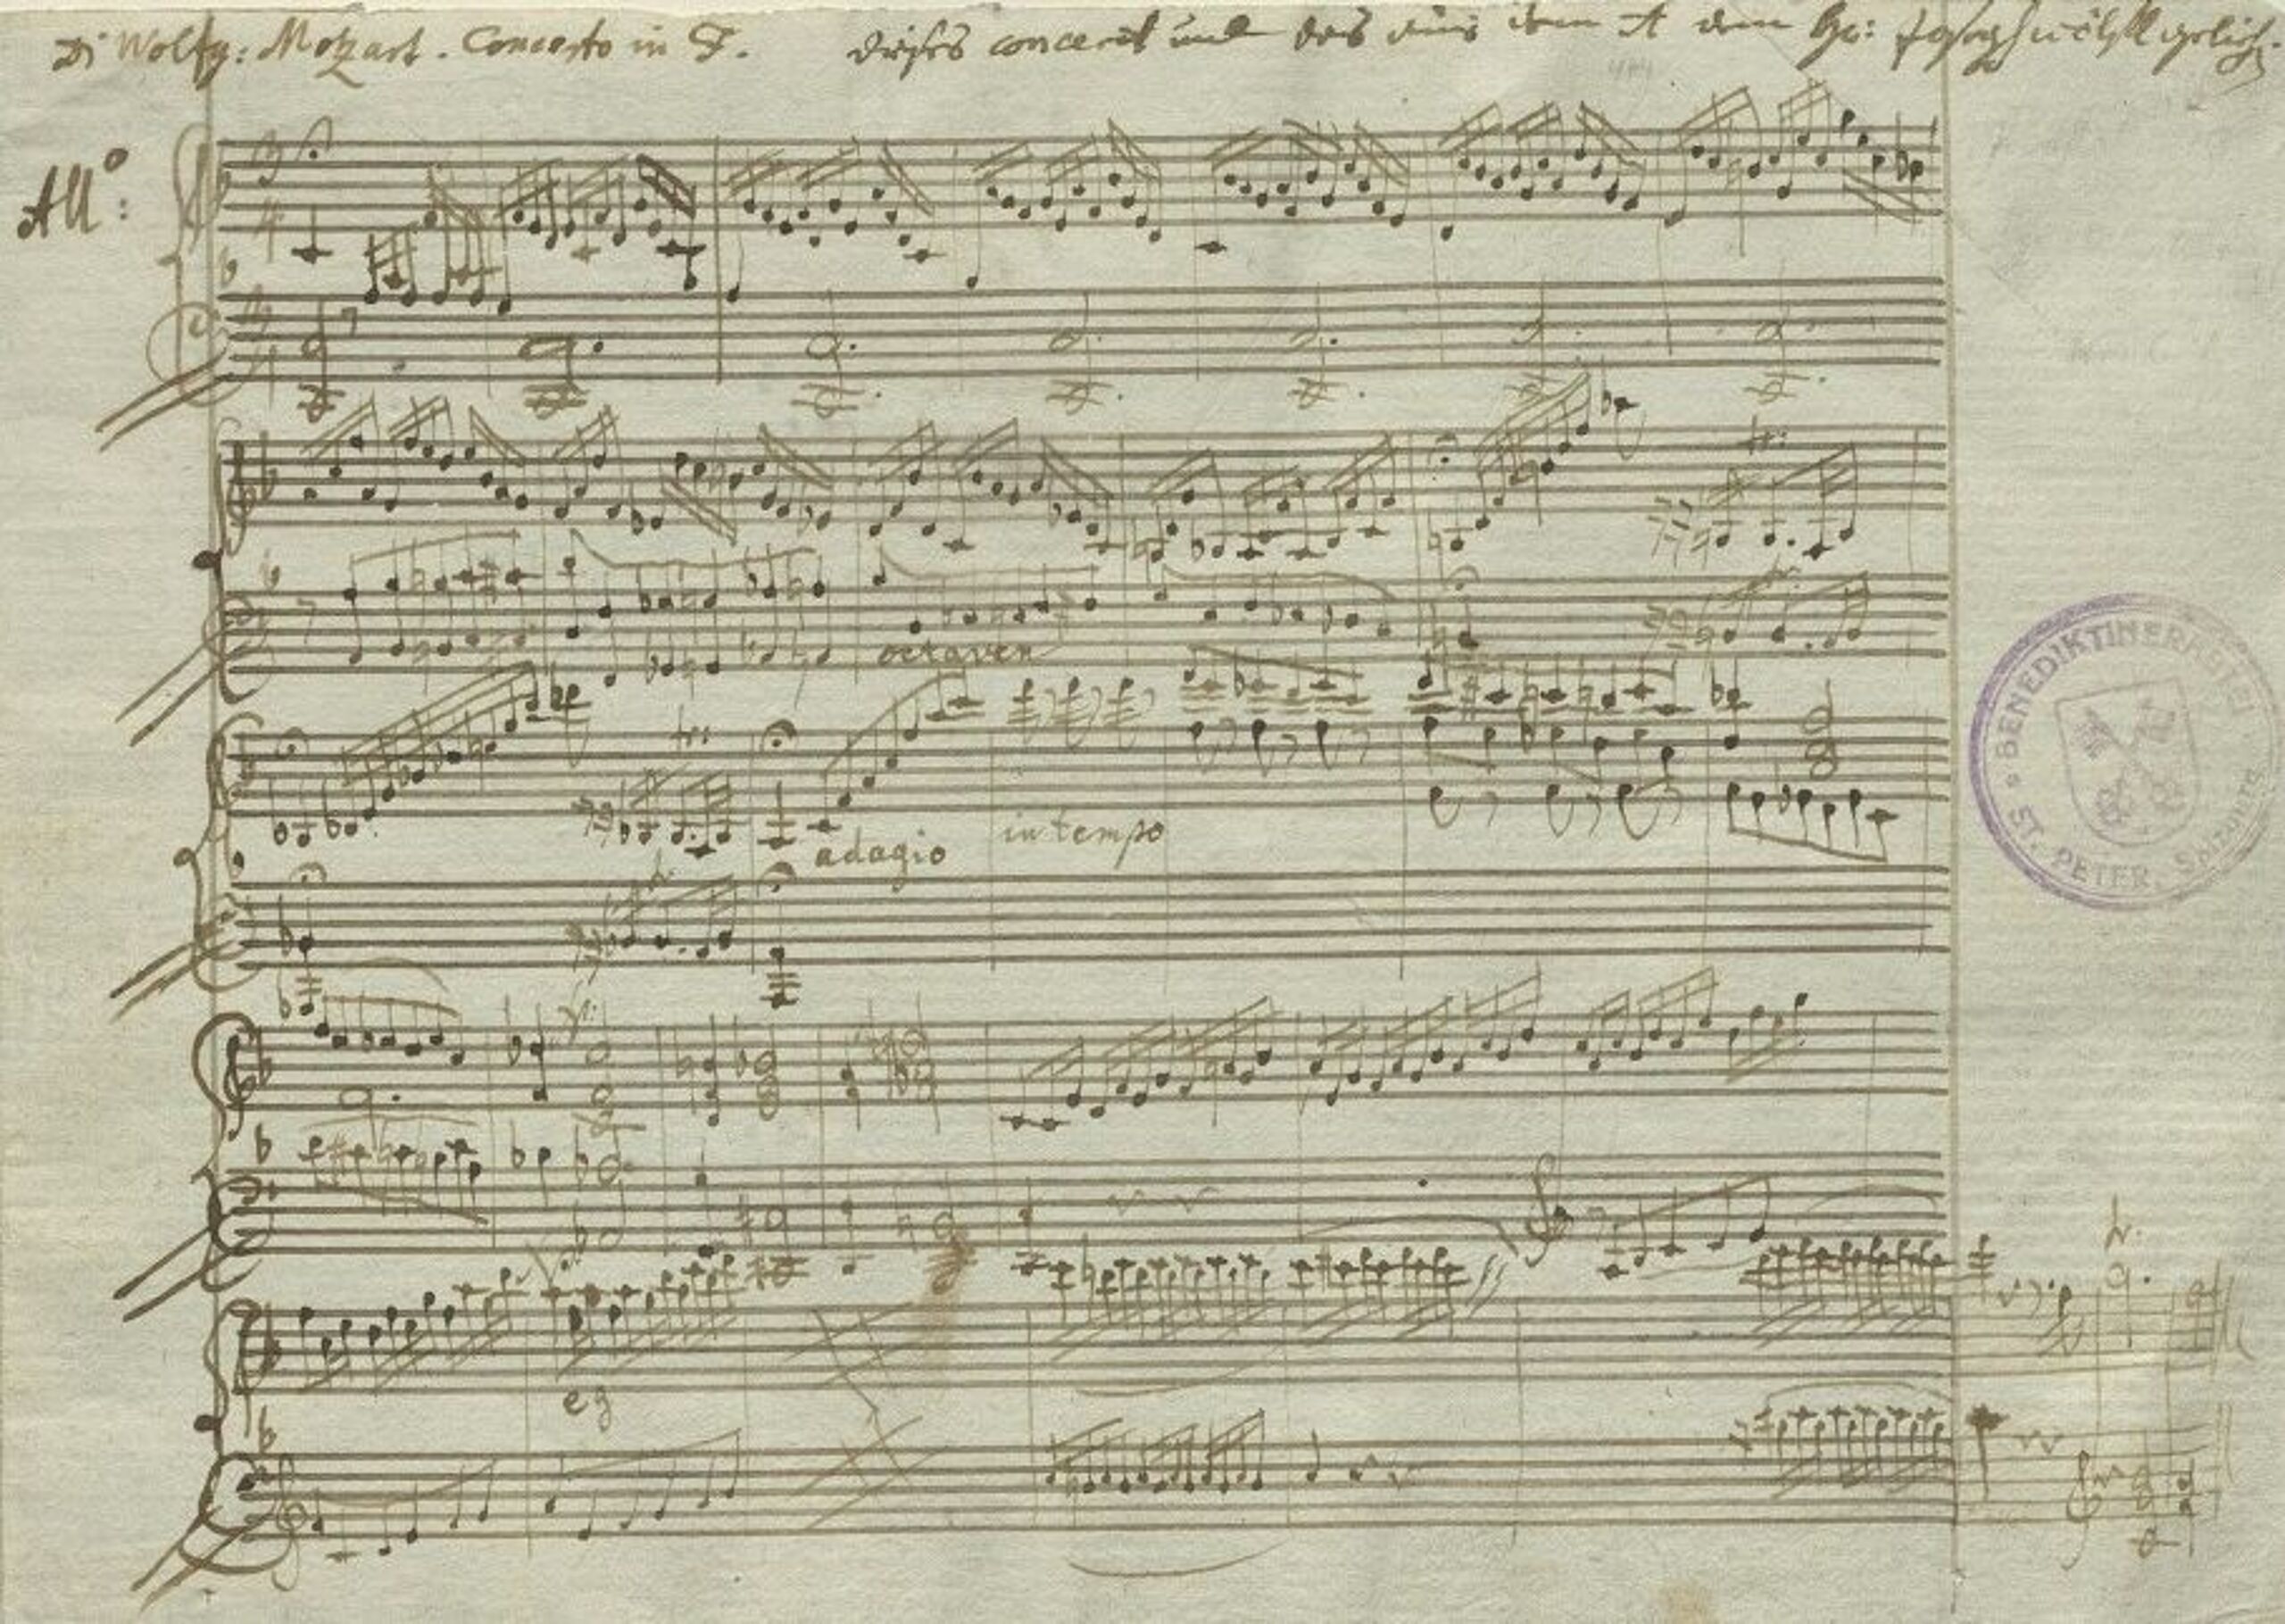 Di Wolfg: Mozart. Concerto in F. dieses concert und das aus dem A dem Hr:
All:o
octaven
adagio
in tempo
eg
BENEDIKTINERABTEI
ST. PETER, Salzburg